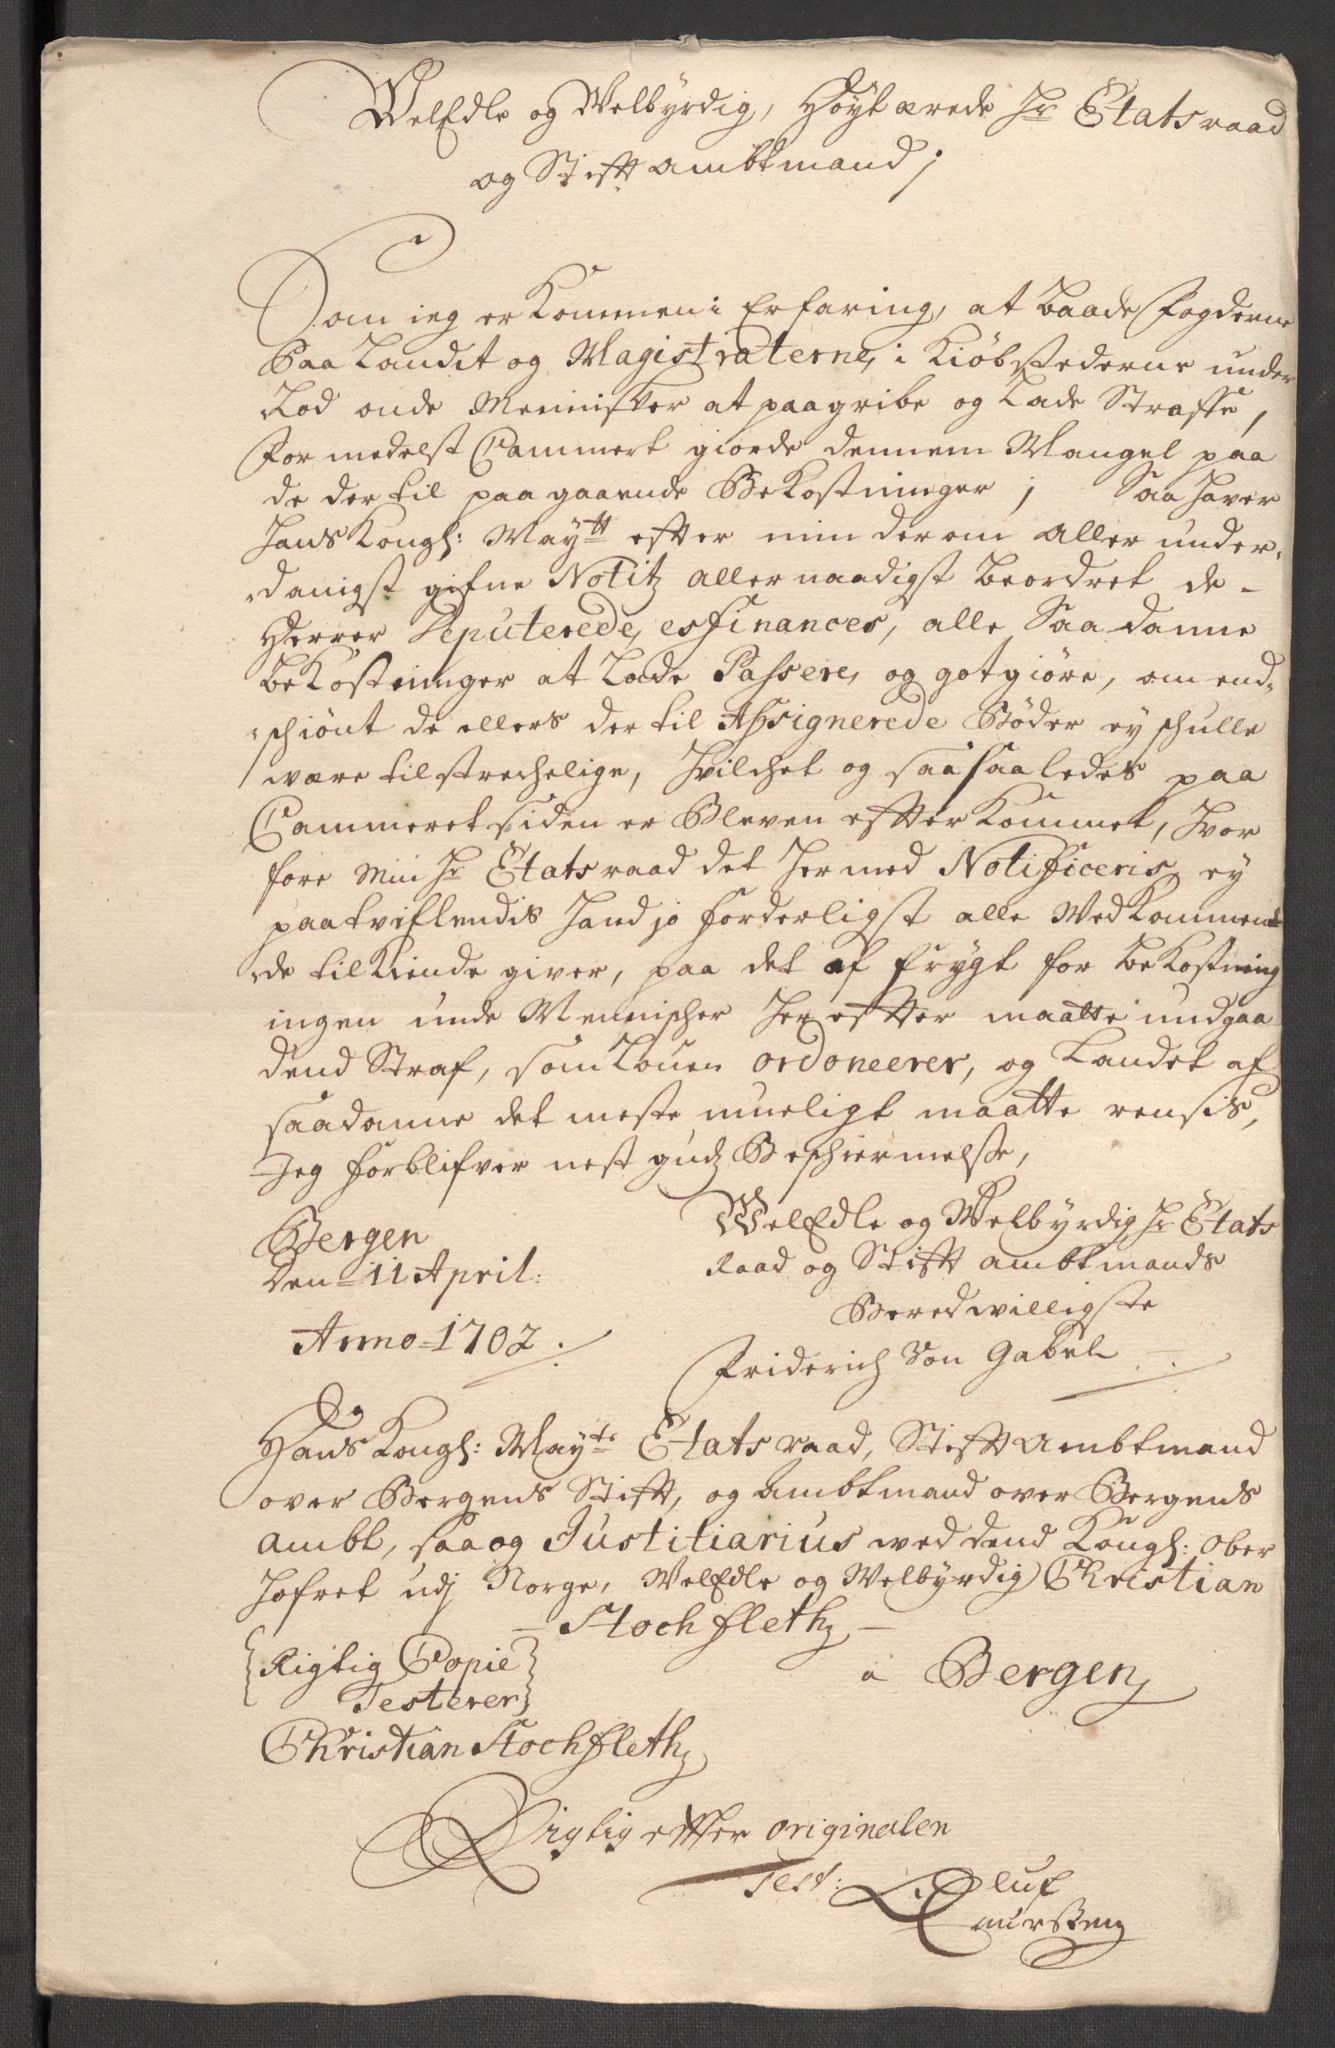 WelEdle og Welbyrdig, Høyt ærede Hr Etatsraad
og Stift ambtmand;
Som ieg er Kommen i Erfaring, at baade Fogderne
Paa Landit og Magistraterne, i Kiöbstederne under
Lod onde Mennisker at paagribe og Lade Straffe,
Formedelst Cammert giorde dennem Mangel paa
de der til paagaaende Bekostninger; Saa haver
Hans Kongl: Maytt efter min derom aller under-
danigst gifne Notitz allernaadigst beordret de
Herrer Deputerede, es finances, alle Saadanne
beKostninger at Lade Passere, og gotgiöre, om end-
schiönt de ellers der til Assignerede Bøder ey schulle
være tilstrechelige, hvilchet og saa saaledes paa
Cammeret siden er Bleven efterkommet, Hvor
fore Min Hr Etatsraad det hermed Notificeris, ey
paatviflendis hand jo forderligst alle VedKommen-
de tilKiende giver, paa det af frygt for beKostning
ingen unde Mennischer her effter maatte undgaa
dend Straf, som Louen ordoneerer, og Landet af
saadanne det meste mueligt maatte rensis,
Jeg forblifver nest gudz Beschiermelse,
WelEdle og Welbyrdig Hr Etats
Raad og Stift ambtmands
Beredwilligste
Friderich Von Gabel
Bergen
Den 11 April:
Anno 1702
Hans Kongl: Mayts Etatsraad, Stift Ambtmand
over Bergens Stift, og Ambtmand over Bergens
Ambt, saa og Justitiarius wed dend Kongl: Ober
Hofret udj Norge, WelEdle og Welbyrdig Christian
Stochfleth
a Bergen
Rigtig Copie
Testerer
Christian Stochfleth
Rigtig efter originalen
Test: Oluf